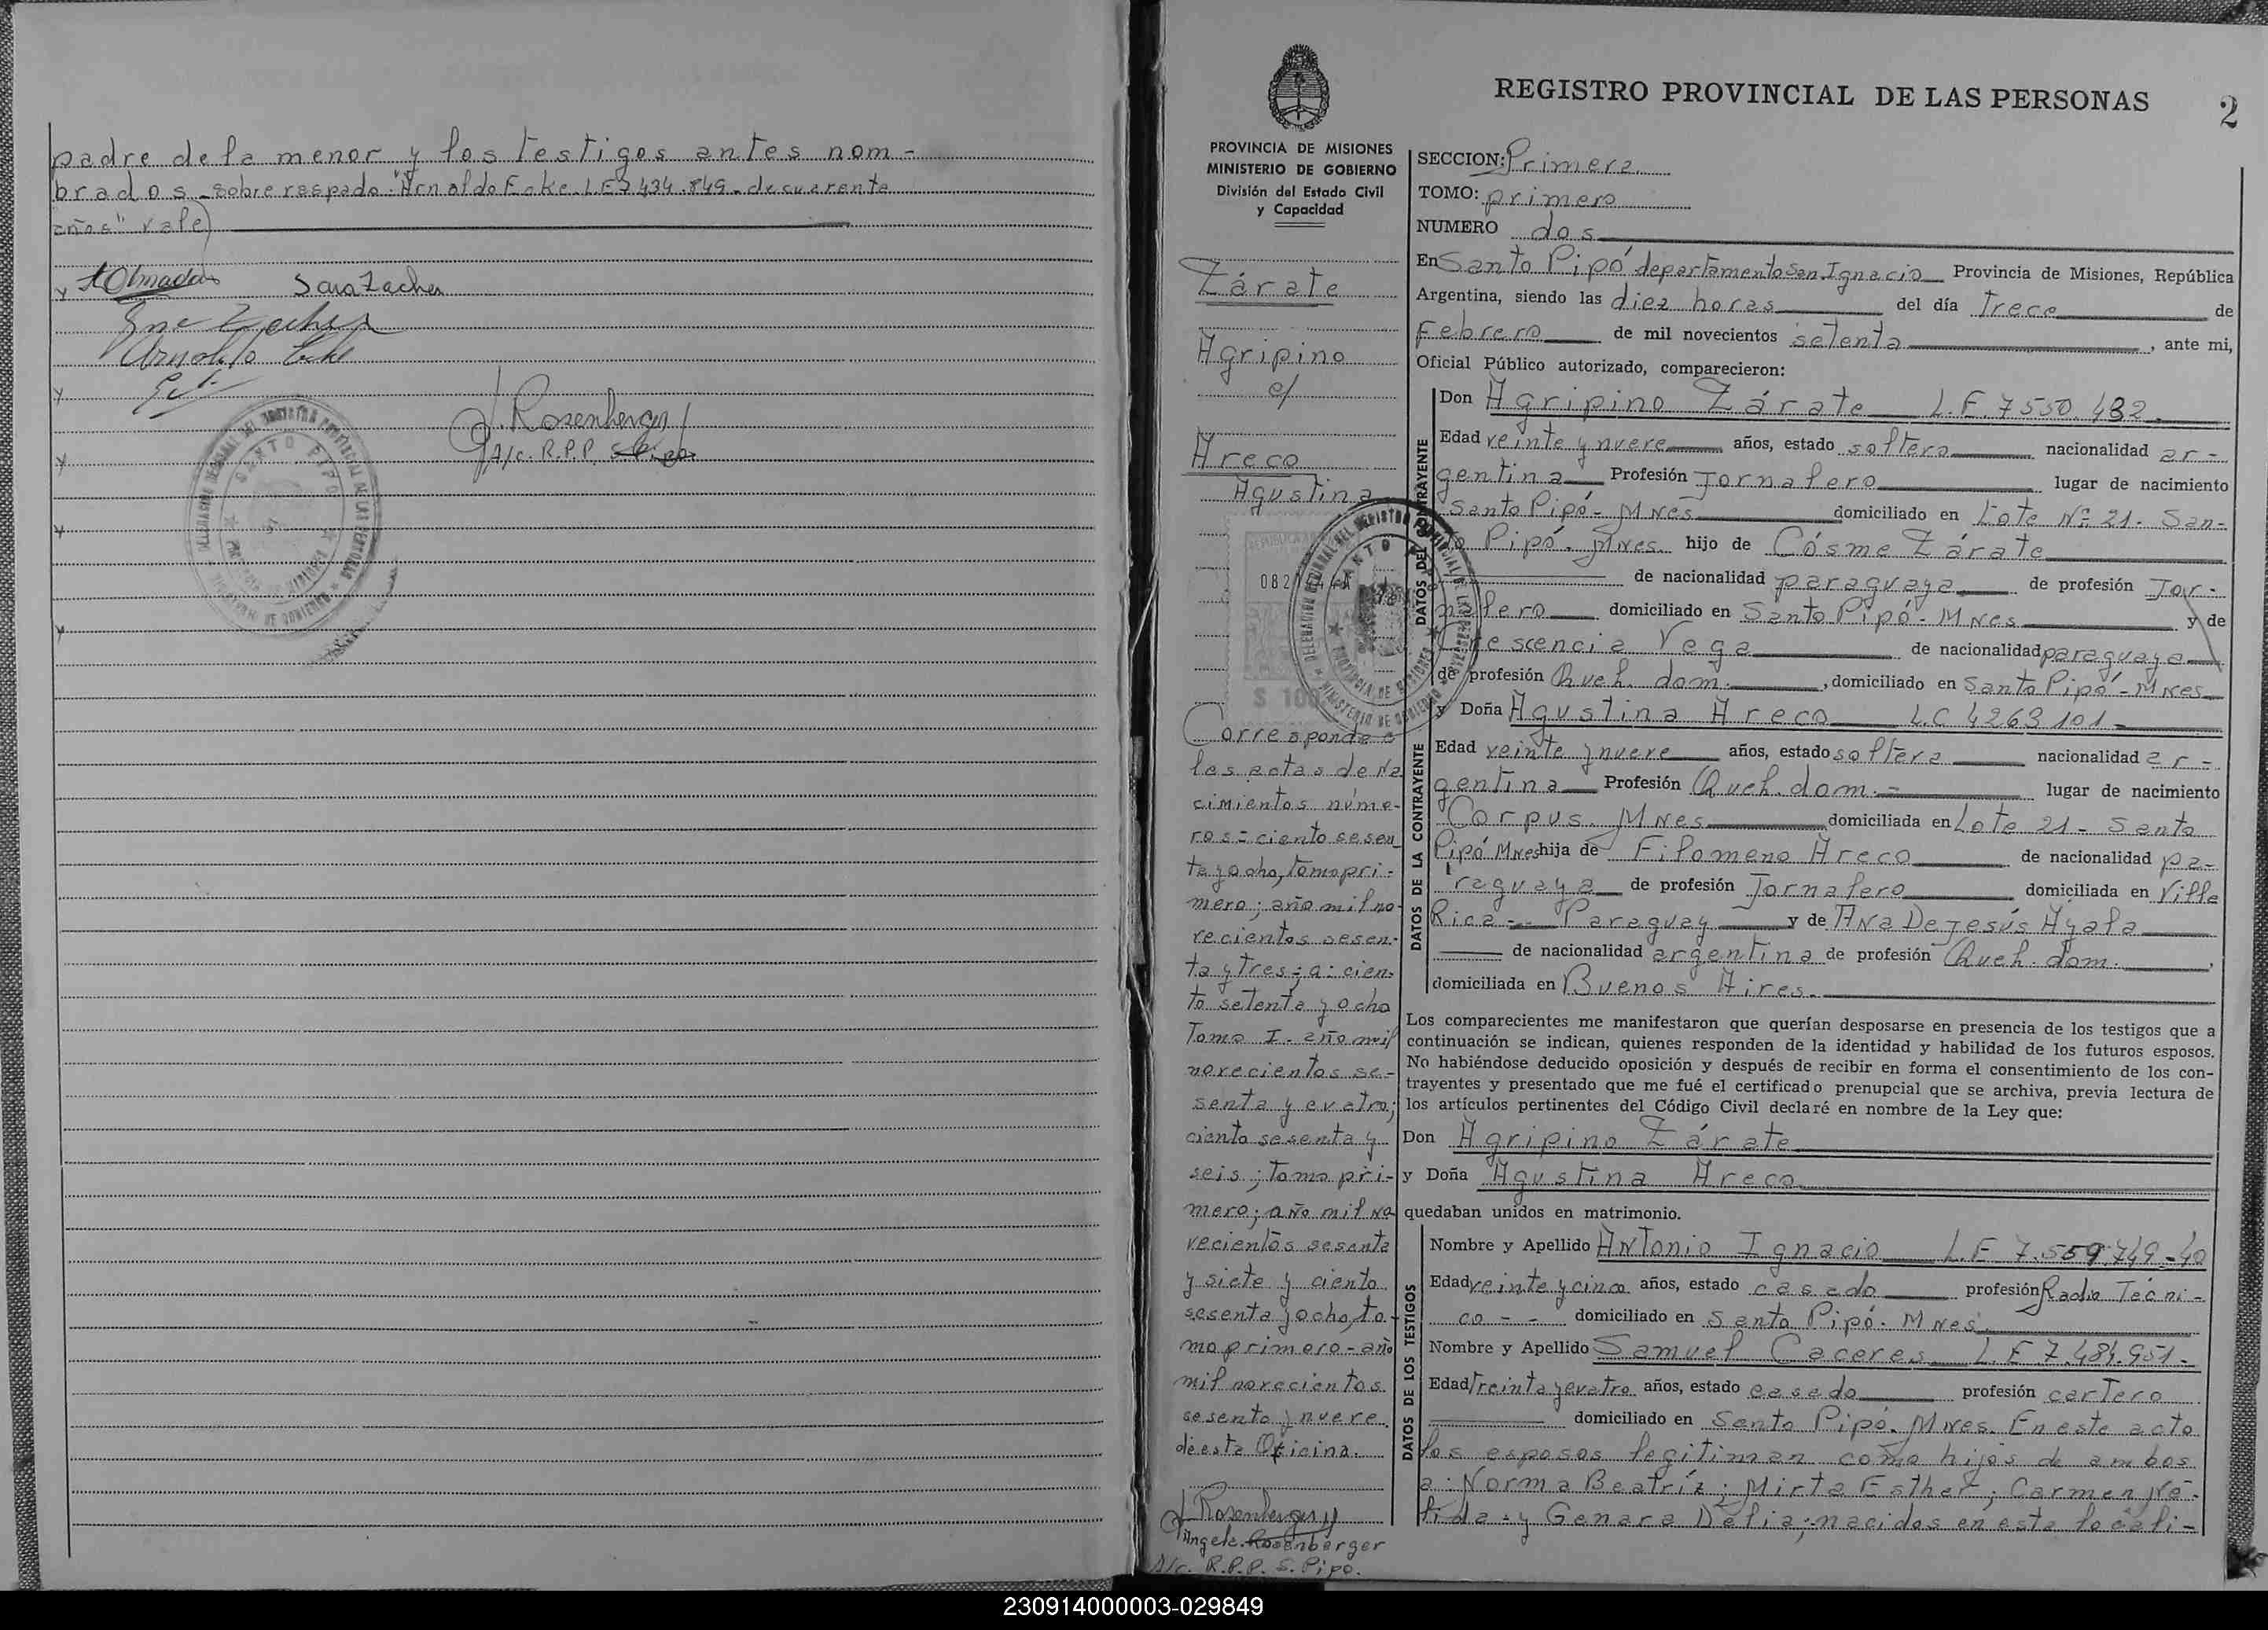 padre de la menor y los testigos antes nom-
brados - sobre raspado: "Arnaldo Eske L.E 7.434.849 - de cuarenta
años" vale)
Sara Zacher
J. Rosenberger
A/c. R.P.P. S. Pipó
SANTO PIPO
REGISTRO PROVINCIAL DE LAS PERSONAS
2
PROVINCIA DE MISIONES
MINISTERIO DE GOBIERNO
División del Estado Civil
y Capacidad
Zárate
Agripino
c/
Areco
Agustina
Corresponde a
las actas de na
cimientos núme-
ros = ciento sesen
ta y ocho, tomo pri-
mero; año mil no-
vecientos sesen-
ta y tres; a: cien-
to setenta y ocho
Tomo I - año mil
novecientos se-
senta y cuatro;
ciento sesenta y
seis; tomo pri-
mero; año mil no
vecientos sesenta
y siete y ciento
sesenta y ocho, to-
mo primero - año
mil novecientos
sesenta y nueve
de esta Oficina.
J. Rosenberger
Angela Rosenberger
A/c. R.P.P. S. Pipó.
SECCION: Primera
TOMO: primero
NUMERO dos
En Santo Pipó departamento San Ignacio Provincia de Misiones, República
Argentina, siendo las diez horas del día Trece de
Febrero de mil novecientos setenta, ante mi,
Oficial Público autorizado, comparecieron:
DATOS DEL CONTRAYENTE
Don Agripino Zárate L.E. 7550.432.
Edad veinte y nueve años, estado soltero nacionalidad ar-
gentina Profesión Jornalero lugar de nacimiento
Santo Pipó - Mnes domiciliado en Lote Nº 21 - San-
to Pipó. Mnes. hijo de Cósme Zárate
de nacionalidad paraguaya de profesión Jor-
nalero domiciliado en Santo Pipó - Mnes y de
Crescencia Vega de nacionalidad paraguaya
de profesión Queh. dom., domiciliado en Santo Pipó - Mnes
DATOS DE LA CONTRAYENTE
y Doña Agustina Areco L.C 4263101 -
Edad veinte y nueve años, estado soltera nacionalidad ar-
gentina Profesión Queh. dom. - lugar de nacimiento
Corpus. Mnes domiciliada en Lote 21 - Santo
Pipó Mnes hija de Filomeno Areco de nacionalidad pa-
raguaya de profesión Jornalero domiciliada en Villa
Rica - Paraguay y de Ana De Jesús Ayala
de nacionalidad argentina de profesión Queh. dom.,
domiciliada en Buenos Aires.
Los comparecientes me manifestaron que querían desposarse en presencia de los testigos que a
continuación se indican, quienes responden de la identidad y habilidad de los futuros esposos.
No habiéndose deducido oposición y después de recibir en forma el consentimiento de los con-
trayentes y presentado que me fué el certificado prenupcial que se archiva, previa lectura de
los artículos pertinentes del Código Civil declaré en nombre de la Ley que:
Don Agripino Zárate
y Doña Agustina Areco
quedaban unidos en matrimonio.
DATOS DE LOS TESTIGOS
Nombre y Apellido Antonio Ignacio L.E 7.559.749 - 40
Edad veinte y cinco años, estado casado profesión Radio Técni-
co - - domiciliado en Santo Pipó. Mnes
Nombre y Apellido Samuel Caceres L.E 7.484.951 -
Edad treinta y cuatro años, estado casado profesión cartero
domiciliado en Santo Pipó. Mnes. En este acto
los esposos legitiman como hijos de ambos
a: Norma Beatríz; Mirta Esther; Carmen Né-
lida y Genara Delia; nacidos en esta locali-
230914000003-029849